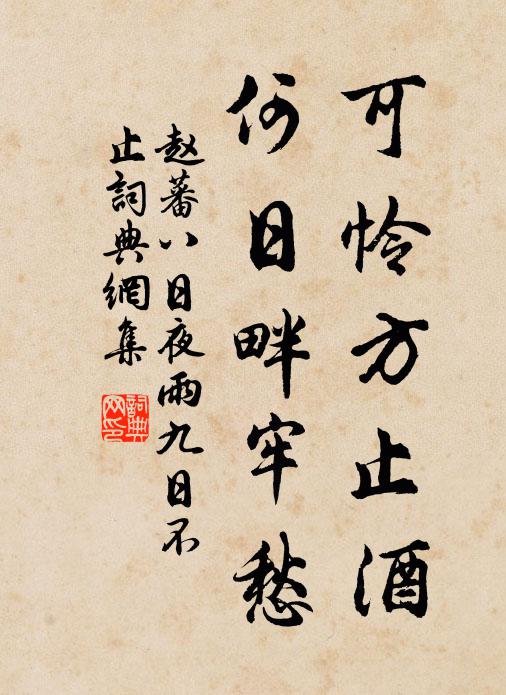 可怜方止酒
何日畔牢愁
赵蕃八日夜雨九日不
止詞典網集
詞典
网印